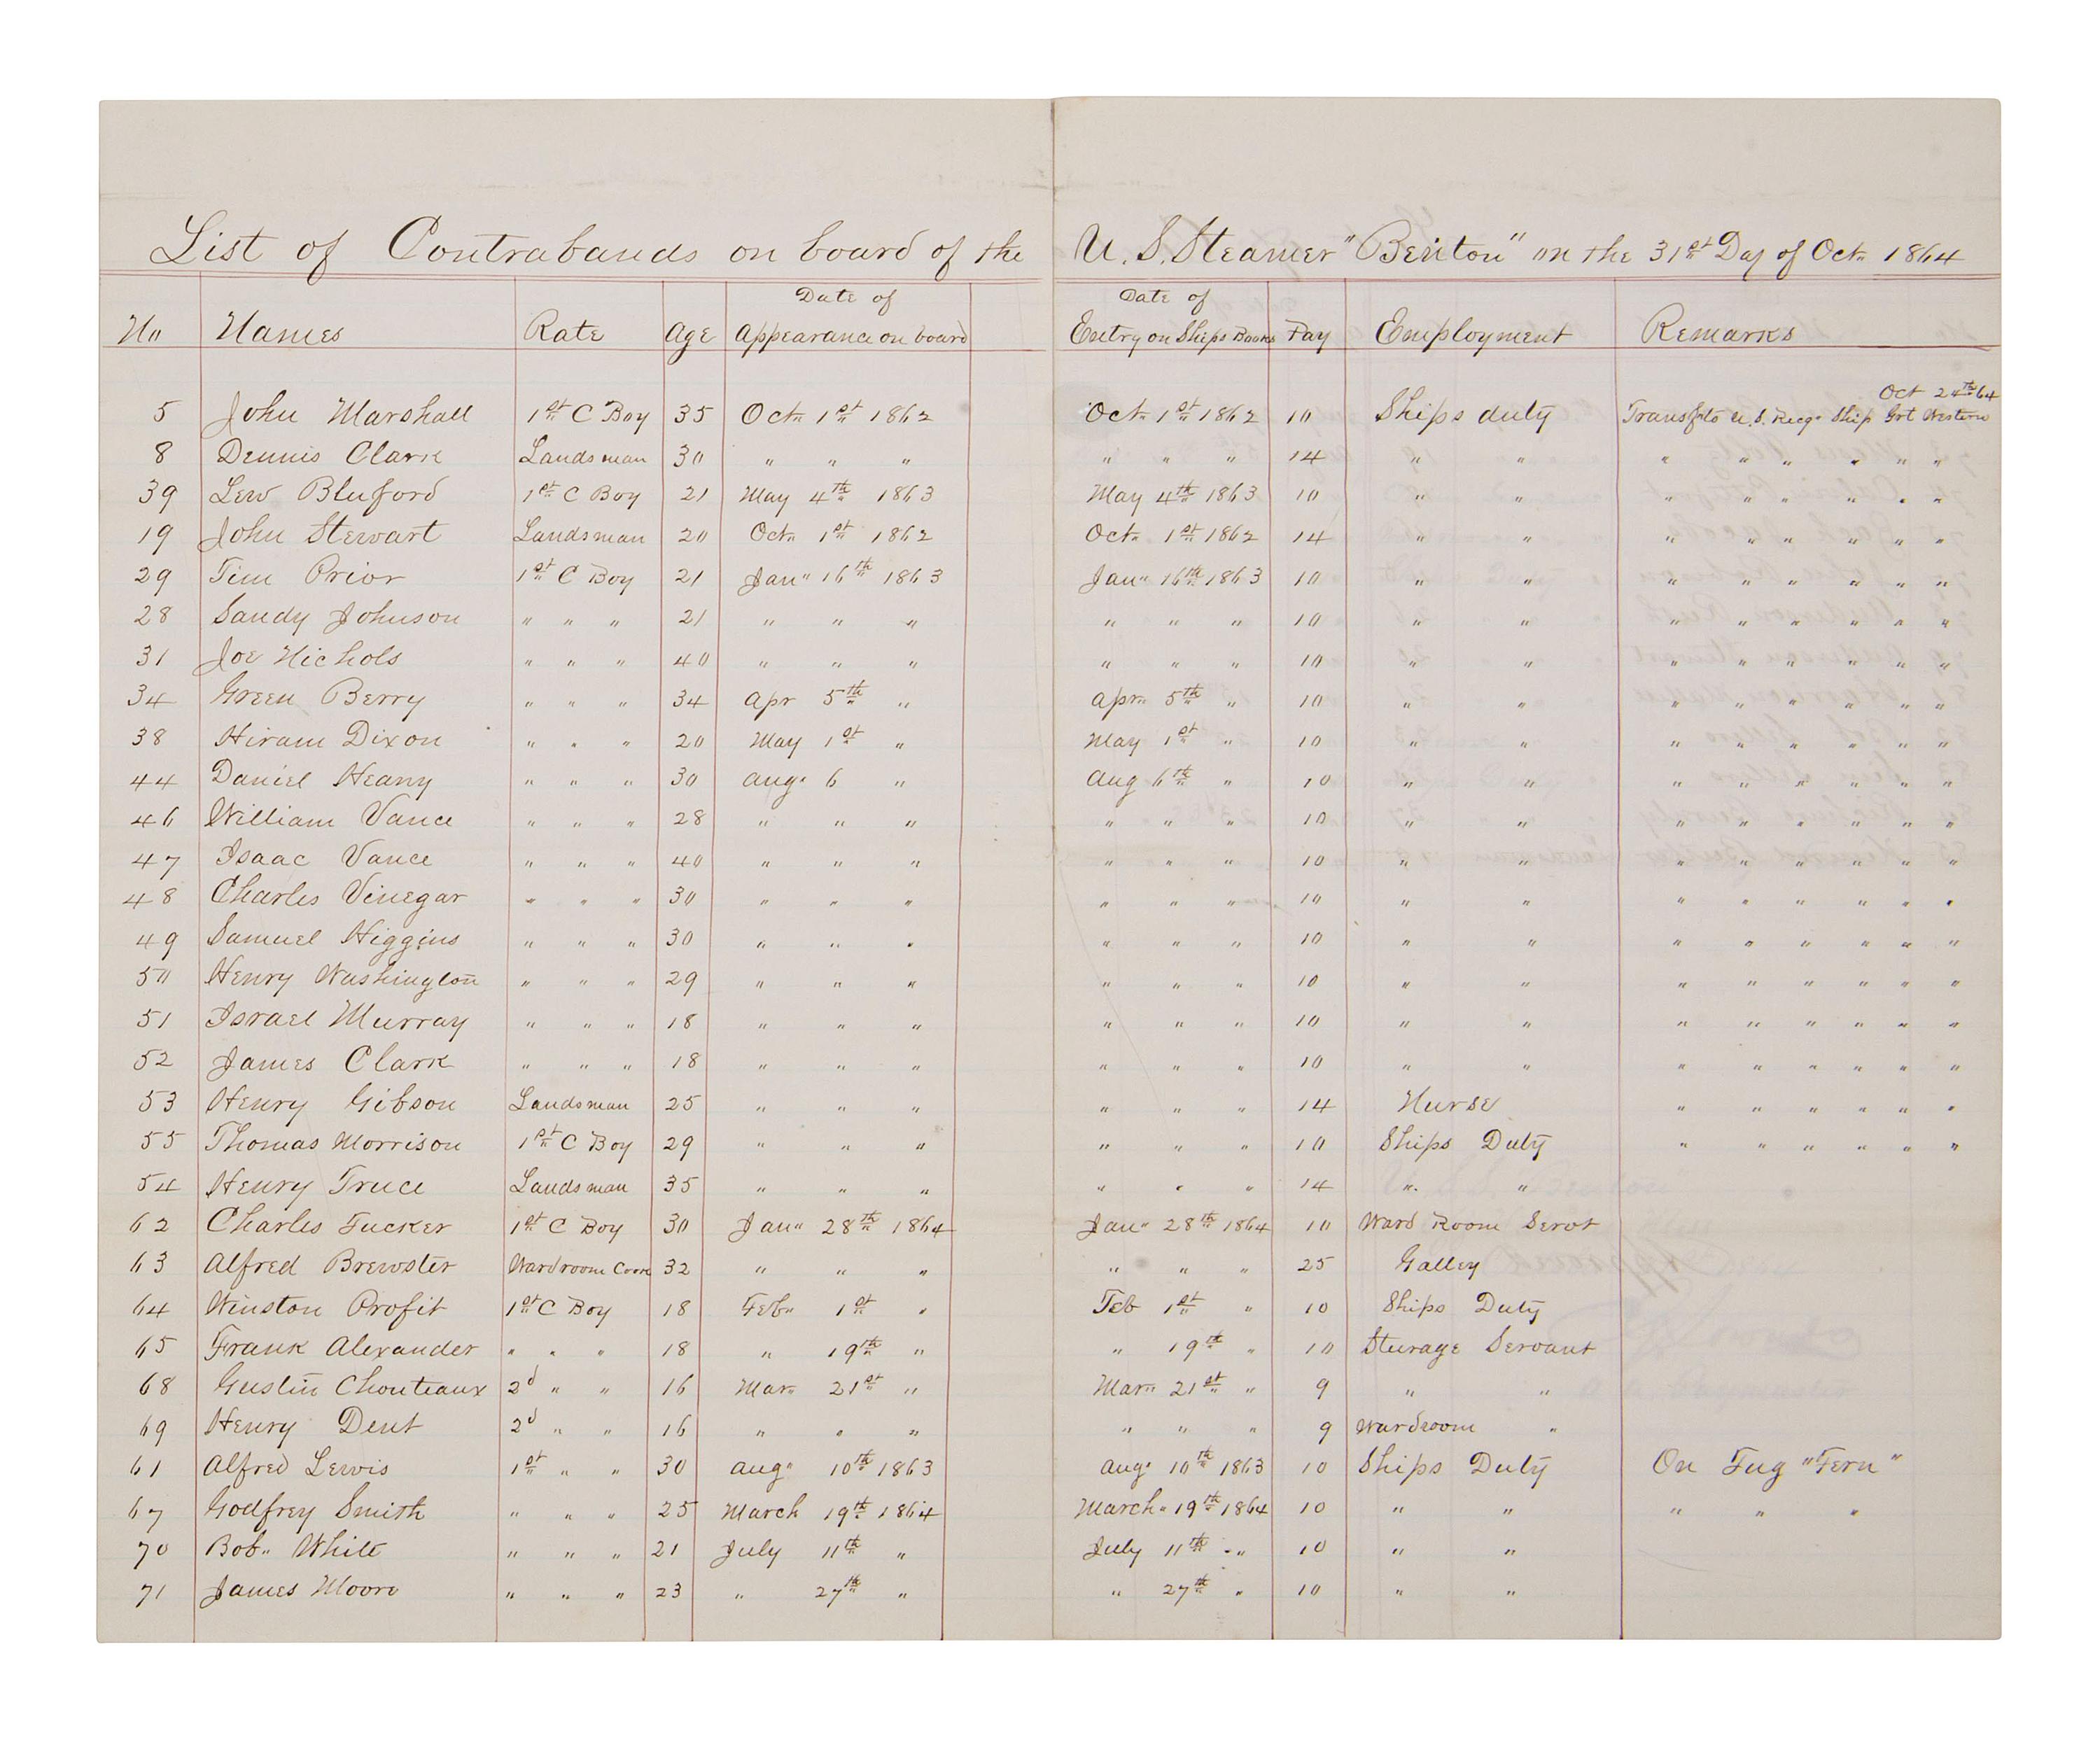 List of Contrabands on board of the U.S. Steamer "Benton" on the 31st Day of Oct. 1864
No Names Rate Age Date of Appearance on board Date of Entry on Ships Books Pay Employment Remarks
Oct 24th 64
5 John Marshall 1st C Boy 35 Oct. 1st 1862 Oct. 1st 1862 10 Ships duty Transf to U.S. Recg Ship Grt Western
8 Dennis Clark Landsman 30 " " " " " " 14 " " " " " " " "
39 Lew Bluford 1st C Boy 21 May 4th 1863 May 4th 1863 10 " " " " " " " "
19 John Stewart Landsman 20 Oct. 1st 1862 Oct. 1st 1862 14 " " " " " " " "
29 Tim Prior 1st C Boy 21 Jan" 16th 1863 Jan" 16th 1863 10 " " " " " " " "
28 Sandy Johnson " " " 21 " " " " " " 10 " " " " " " " "
31 Joe Nichols " " " 40 " " " " " " 10 " " " " " " " "
34 Green Berry " " " 34 Apr 5th " Apr. 5th " 10 " " " " " " " "
38 Hiram Dixon " " " 20 May 1st " May 1st " 10 " " " " " " " "
44 Daniel Heany " " " 30 Aug. 6 " Aug 6th " 10 " " " " " " " "
46 William Vance " " " 28 " " " " " " 10 " " " " " " " "
47 Isaac Vance " " " 40 " " " " " " 10 " " " " " " " "
48 Charles Vinegar " " " 30 " " " " " " 10 " " " " " " " "
49 Samuel Higgins " " " 30 " " " " " " 10 " " " " " " " "
50 Henry Washington " " " 29 " " " " " " 10 " " " " " " " "
51 Israel Murray " " " 18 " " " " " " 10 " " " " " " " "
52 James Clark " " " 18 " " " " " " 10 " " " " " " " "
53 Henry Gibson Landsman 25 " " " " " " 14 Nurse " " " " " "
55 Thomas Morrison 1st C Boy 29 " " " " " " 10 Ships Duty " " " " " "
54 Henry Truce Landsman 35 " " " " " " 14 " "
62 Charles Tucker 1st C Boy 30 Jan" 28th 1864 Jan" 28th 1864 10 Ward Room Servt
63 Alfred Brewster Wardroom Cook 32 " " " " " " 25 Galley
64 Winston Profit 1st C Boy 18 Feb" 1st " Feb 1st " 10 Ships Duty
65 Frank Alexander " " " 18 " 19th " " 19th " 10 Sturage Servant
68 Gustin Chouteaux 2d " " 16 Mar. 21st " Mar. 21st " 9 " "
69 Henry Dent 2d " " 16 " " " " " " 9 Wardroom "
61 Alfred Lewis 1st " " 30 Aug" 10th 1863 Aug. 10th 1863 10 Ships Duty On Tug "Fern"
67 Godfrey Smith " " " 25 March 19th 1864 March. 19th 1864 10 " " " " "
70 Bob" White " " " 21 July 11th " July 11th " 10 " "
71 James Moore " " " 23 " 27th " " 27th " 10 " "